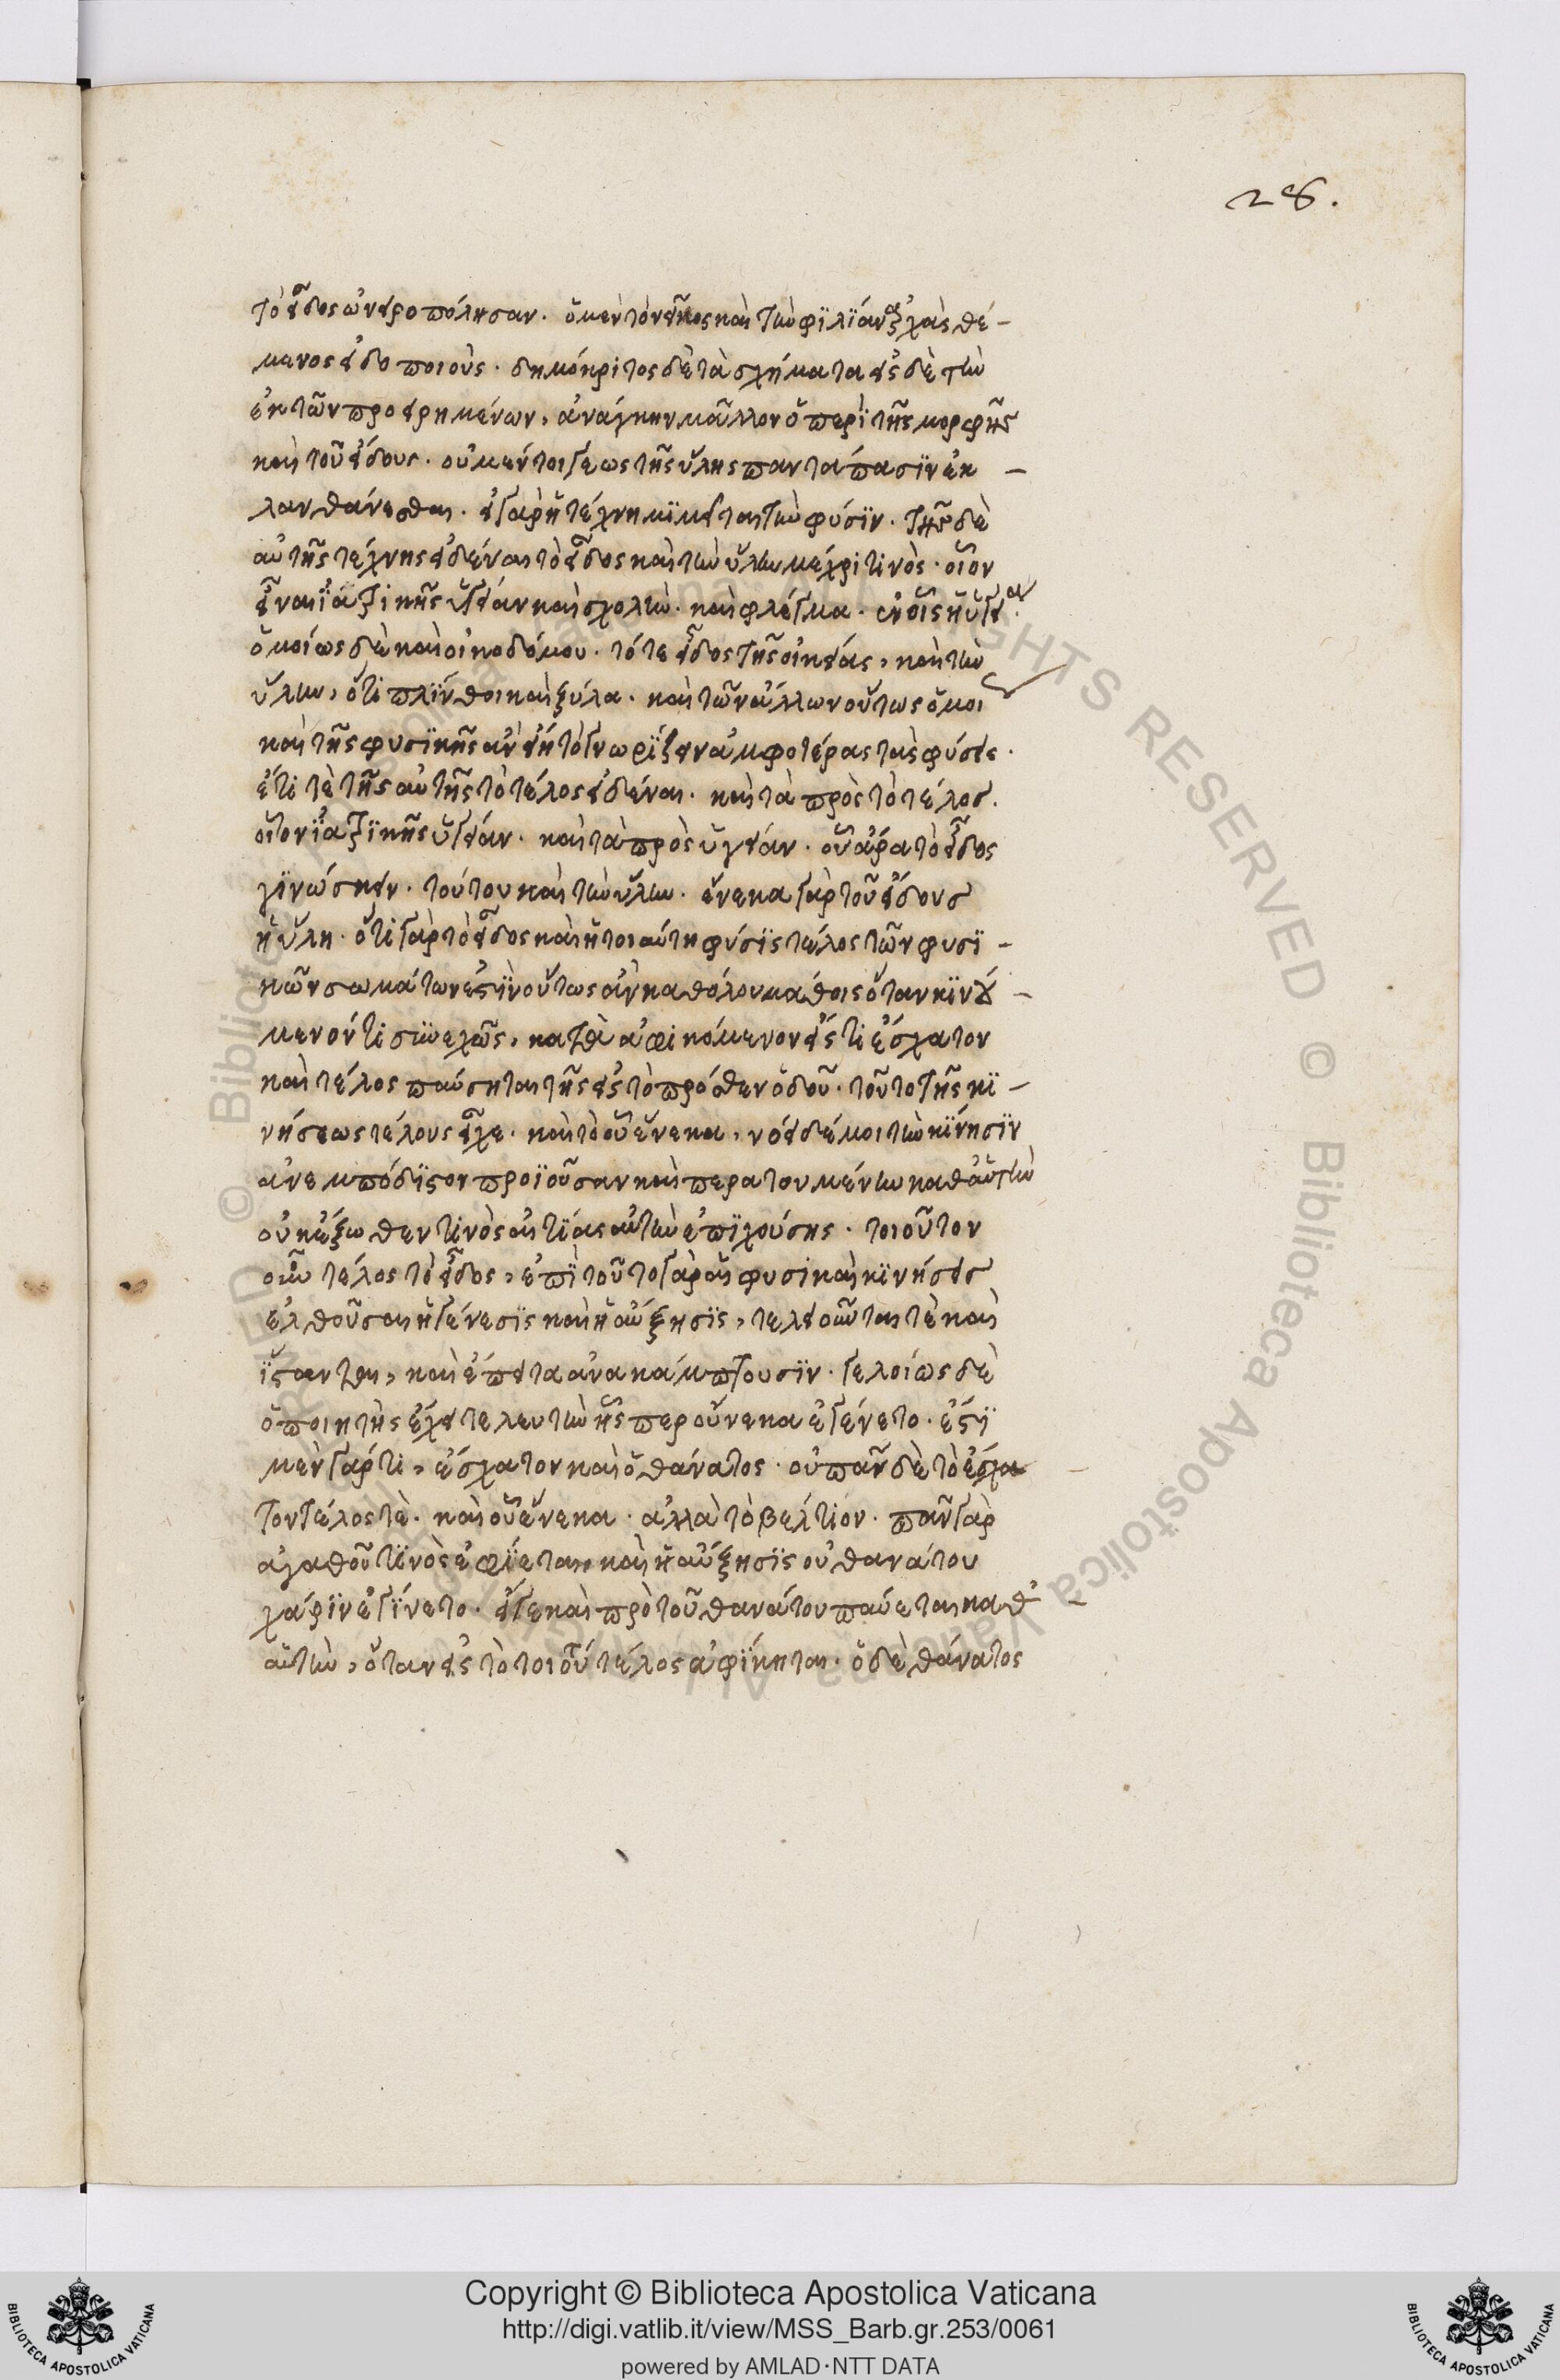 28.
τὸ εἶδος ὠνειροπόλησαν. ὁ μὲν τὸ νεῖκος καὶ τὴν φϊλϊάν ἀρχὰς θέ-
μενος εἰδοποιούς. δημόκριτος δὲ τὰ σχήματα εἰς δὲ τὴν
ἐκ τῶν προειρημένων, ἀνάγκην μᾶλλον ὁ περὶ τῆς μορφῆς
καὶ τοῦ εἴδους. οὐ μέντοι γε ὡς τῆς ὕλης παντάπασϊν ἐκ-
λανθάνεσθαι. εἰ γὰρ ἡ τέχνη μϊμεῖται τὴν φύσϊν. τῆς δὲ
αὐτῆς τέχνης εἰδέναι τὸ εἶδος καὶ τὴν ὕλην μέχρι τινὸς. οἷον
εἶναι ϊατρικῆς ὑγείαν καὶ χολὴν. καὶ φλέγμα. ἐν οἷς ἡ ὑγεία.
ὁμοίως δὲ καὶ οἰκοδόμου. τό τε εἶδος τῆς οἰκείας, καὶ τὴν
ὕλην, ὅτι πλϊνθοι καὶ ξύλα. καὶ τῶν ἄλλων οὕτως ὁμοι
καὶ τῆς φυσϊκῆς ἂν εἴη τὸ γνωρϊζειν ἀμφοτέρας τὰς φύσεις.
ἔτι τὲ τῆς αὐτῆς τὸ τέλος εἰδέναι. καὶ τὰ πρὸς τὸ τέλος.
οἷον ϊατρϊκῆς ὑγείαν. καὶ τὰ πρὸς ὑγείαν. οὗ ἄρα τὸ εἶδος
γϊνώσκειν. τούτου καὶ τὴν ὕλην. ἕνεκα γὰρ τοῦ εἴδους
ἡ ὕλη. ὅτι γὰρ τὸ εἶδος καὶ ἡ τοιαύτη φύσϊς τέλος τῶν φυσϊ-
κῶν σωμάτων ἐστϊν οὕτως ἂν καθόλου μάθοις ὅταν κϊνού-
μενόν τι συνεχῶς, κἄπειτα ἀφικόμενον εἴς τι ἔσχατον
καὶ τέλος παύσηται τῆς εἰς τὸ πρόσθεν ὁδοῦ. τοῦτο τῆς κϊ-
νήσεως τέλους εἶχε. καὶ τὸ οὗ ἕνεκα, νόει δέ μοι τὴν κϊνησϊν
ἀνεμπόδϊστον προϊοῦσαν καὶ περατουμένην καθ' αὑτὴν
οὐκ ἔξωθεν τϊνὸς αἰτϊας αὐτὴν ἐπϊχούσης. τοιοῦτον
οὖν τέλος τὸ εἶδος, ἐπϊ τοῦτο γὰρ αἱ φυσικαὶ κϊνήσεις
ἐλθοῦσαι ἡ γένεσϊς καὶ ἡ αὔξησϊς, τελειοῦνται τὲ καὶ
ϊστανται, καὶ ἔπειτα ἀνακάμπτουσϊν. γελοίως δὲ
ὁ ποιητὴς ἔχει τελευτὴν ἧς περ οὕνεκα ἐγένετο. ἐστϊ
μὲν γάρ τι, ἔσχατον καὶ ὁ θάνατος. οὐ πᾶν δὲ τὸ ἔσχα
τον τέλος τὲ. καὶ οὗ ἕνεκα. ἀλλὰ τὸ βέλτιον. πᾶν γὰρ
ἀγαθοῦ τϊνὸς ἐφϊεται, καὶ ἡ αὔξησϊς οὐ θανάτου
χάρϊν ἐγϊνετο. εἴγε καὶ πρὸ τοῦ θανάτου παύεται καθ'
αὑτὴν, ὅταν εἰς τὸ τοιοῦτον τέλος ἀφϊκηται. ὁ δὲ θάνατος
Copyright © Biblioteca Apostolica Vaticana
http://digi.vatlib.it/view/MSS_Barb.gr.253/0061
powered by AMLAD·NTT DATA